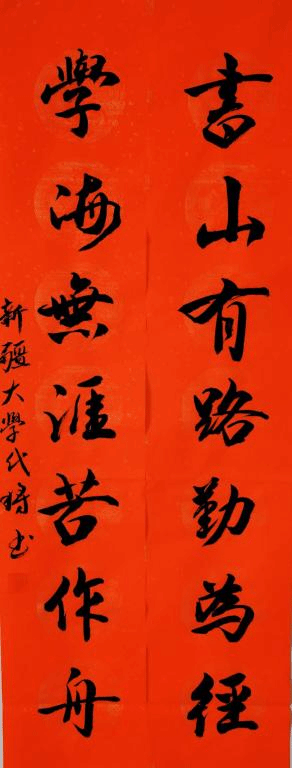 書山有路勤為徑
學海無涯苦作舟
新疆大學代楊书